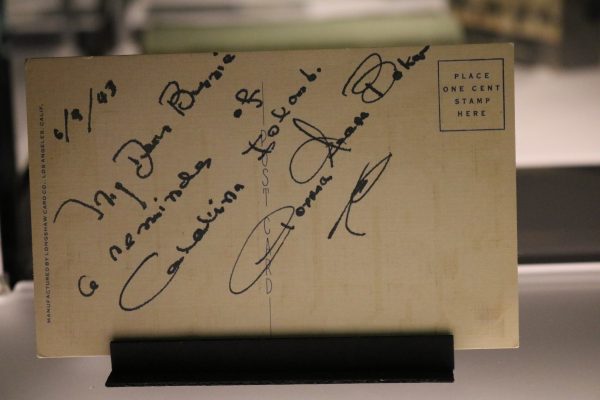 6/8/43
My Dear Bunnie
a reminder of
Catalina Island.
Norma Jeane Baker
POST CARD
PLACE
ONE CENT
STAMP
HERE
MANUFACTURED BY LONGSHAW CARD CO., LOS ANGELES, CALIF.